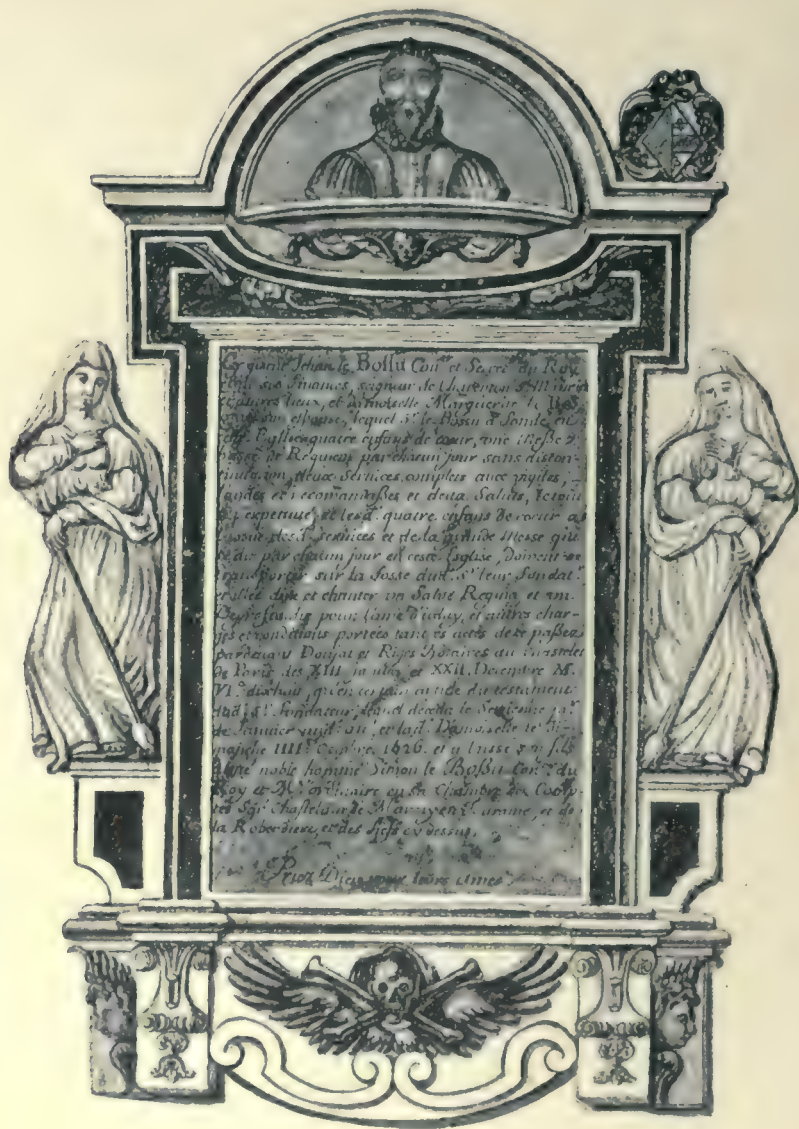 Cy gisent Jehan le Bossu Con.er et Secret.e du Roy
et de ses finances, seigneur de
et autres lieux, et damoiselle Marguerite le
son espouse, lequel S.r le Bossu a fondé en
ceste Eglise quatre enfans de cœur, une Messe
basse de Requiem par chacun jour sans discon-
tinuation, deux Services complets avec vigiles,
laudes et recomandasses et deux Saluts, le tout
à perpetuité et lesd. quatre enfans de cœur a
l'issue desd. services et de la grande Messe qui
se dit par chacun jour en ceste Esglise, doivent se
transporter sur la fosse dud. S.r leur fondat.r
et illec dire et chanter un Salve Regina et un
De profondis pour l'ame d'iceluy, et autres char-
ges et conditions portées tant es actes de ce passez
pardevant Doujat et Notaires au Chastelet
de Paris des XIII et XXII. Decembre M.
VI.c dixhuit, qu'en certain article du testament
dud. S.r fondateur, lequel deceda le
de Janvier et lad. Damoiselle le Di-
manche IIII.e 1626. et a laissé un fils
noble homme Simon le Bossu Con.er du
Roy et M.e ordinaire en sa Chambre des Comp-
tes Sg.r Chastelain de et de
la Roberdiere, et des fiefs cy dessus.
Priez Dieu pour leurs ames